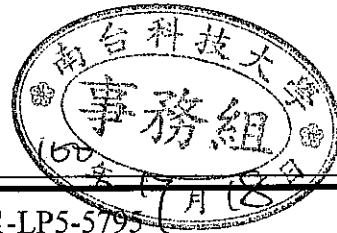 南台科技大學
事務組
100年 7月 18日
-LP5-5795